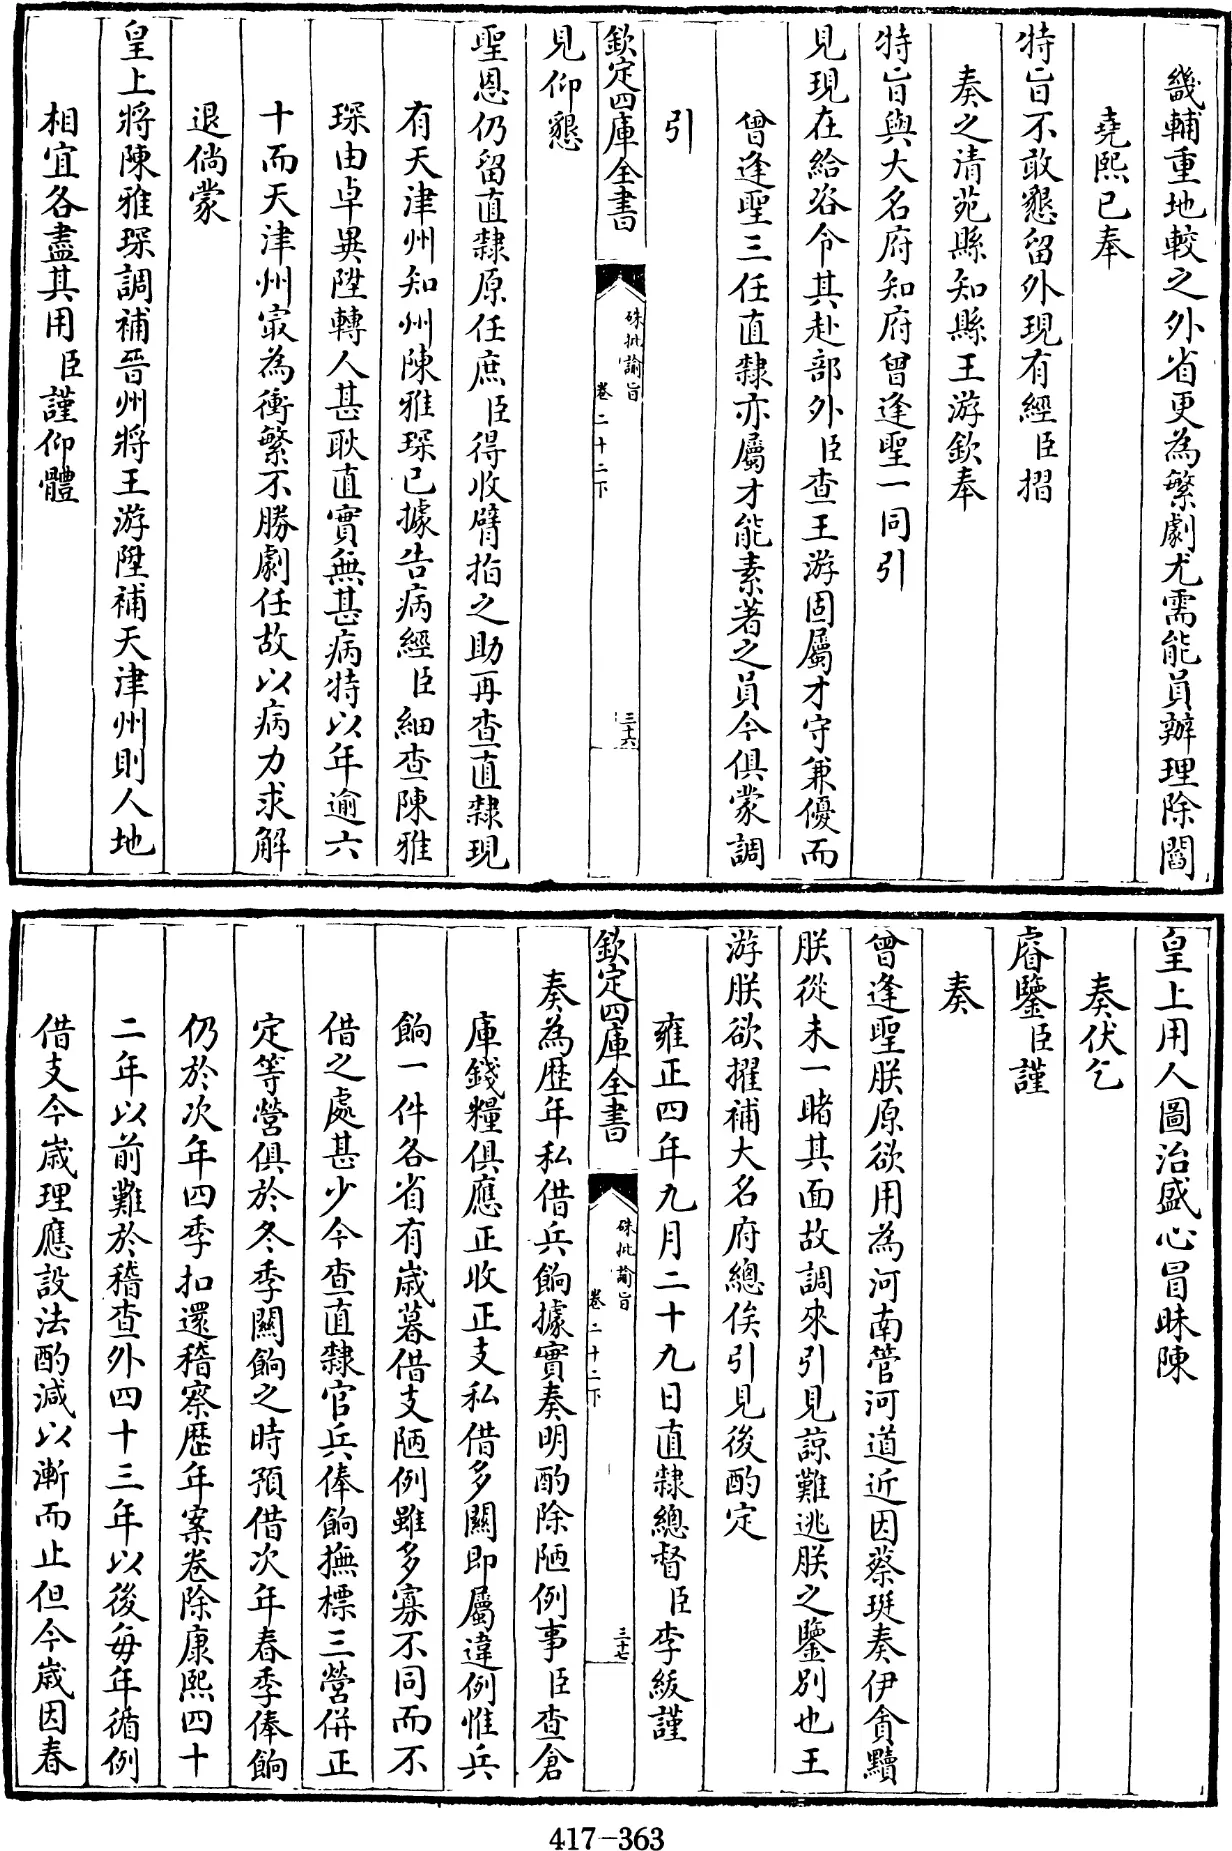 畿輔重地較之外省更為繁劇尤需能員辦理除閻
堯熙已奉
特旨不敢懇留外現有經臣摺
奏之清苑縣知縣王游欽奉
特旨與大名府知府曾逢聖一同引
見現在給咨令其赴部外臣查王游固屬才守兼優而
曾逢聖三任直隸亦屬才能素著之員今俱蒙調
引
欽定四庫全書
硃批諭旨
卷二十二下
三十六
見仰懇
聖恩仍留直隸原任庶臣得收臂指之助再查直隸現
有天津州知州陳雅琛已據告病經臣細查陳雅
琛由卓異陞轉人甚耿直實無甚病特以年逾六
十而天津州㝡為衝繁不勝劇任故以病力求解
退倘蒙
皇上將陳雅琛調補晉州將王游陞補天津州則人地
相宜各盡其用臣謹仰體
皇上用人圖治盛心冒昧陳
奏伏乞
睿鑒臣謹
奏
曾逢聖朕原欲用為河南管河道近因蔡珽奏伊貪黷
朕從未一睹其面故調來引見諒難逃朕之鑒別也王
游朕欲擢補大名府總俟引見後酌定
雍正四年九月二十九日直隸總督臣李紱謹
欽定四庫全書
硃批諭旨
卷二十二下
三十七
奏為歷年私借兵餉據實奏明酌除陋例事臣查倉
庫錢糧俱應正收正支私借多關即屬違例惟兵
餉一件各省有歲暮借支陋例雖多寡不同而不
借之處甚少今查直隸官兵俸餉撫標三營併正
定等營俱於冬季關餉之時預借次年春季俸餉
仍於次年四季扣還稽察歷年案卷除康熙四十
二年以前難於稽查外四十三年以後每年循例
借支今歲理應設法酌減以漸而止但今歲因春
417-363